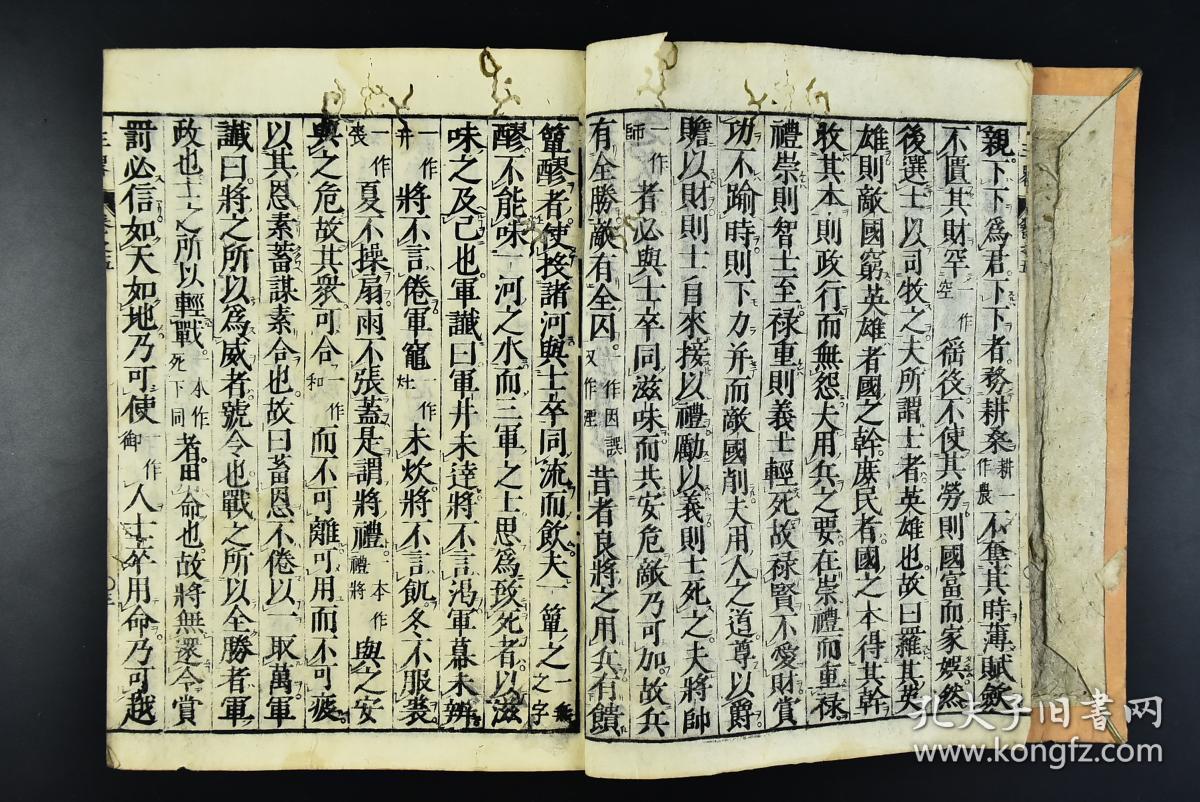 親下下爲君下下者務耕桑耕一作農不奪其時薄賦斂
不匱其財罕一作空徭役不使其勞則國富而家娯然
後選士以司牧之夫所謂士者英雄也故曰羅其英
雄則敵國窮英雄者國之幹庶民者國之本得其幹
收其本則政行而無怨夫用兵之要在崇禮而重禄
禮崇則智士至禄重則義士輕死故禄賢不愛財賞
功不踰時則下力并而敵國削夫用人之道尊以爵
贍以財則士自來接以禮勵以義則士死之夫將帥
一作師者必與士卒同滋味而共安危敵乃可加故兵
有全勝敵有全囚一作因誤又作湮昔者良將之用兵有饋
簞醪者使投諸河與士卒同流而飲夫一簞之一無之字
醪不能味一河之水而三軍之士思爲致死者以滋
味之及己也軍讖曰軍井未達將不言渴軍幕未辨
一作井將不言倦軍竈一作灶未炊將不言飢冬不服裘
一作喪夏不操扇雨不張蓋是謂將禮一本作禮將與之安
與之危故其衆可合一作和而不可離可用而不可疲
以其恩素蓄謀素合也故曰畜恩不倦以一取萬軍
讖曰將之所以爲威者號令也戰之所以全勝者軍
政也士之所以輕戰一本作死下同者用命也故將無還令賞
罰必信如天如地乃可使一作御人士卒用命乃可越
孔夫子旧书网
www.kongfz.com